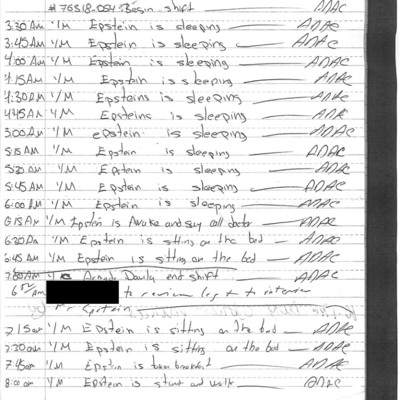 #76318-054 Begin shift ADAC
3:30 AM I/M Epstein is sleeping ADAC
3:45 AM I/M Epstein is sleeping ADAC
4:00 AM I/M Epstein is sleeping ADAC
4:15 AM I/M Epstein is sleeping ADAC
4:30 AM I/M Epsteins is sleeping ADAC
4:45 AM I/M Epsteins is sleeping ADAC
5:00 AM I/M epstein is sleeping ADAC
5:15 AM I/M Epstein is sleeping ADAC
5:30 AM I/M Epstein is sleeping ADAC
5:45 AM I/M Epstein is sleeping ADAC
6:00 AM I/M Epstein is sleeping ADAC
6:15 AM I/M Epstein is Awake and say call doctor ADAC
6:30 AM I/M Epstein is sitting on the bed ADAC
6:45 AM I/M Epstein is sitting on the bed ADAC
7:00 AM end shift ADAC
6 AM to review log + to interview
Mr Epstein
7:15 am I/M Epstein is sitting on the bed ADAC
7:30 am I/M Epstein is sitting on the bed ADAC
7:45 am I/M Epstein is breakfast ADAC
8:00 am I/M Epstein is and walk ADAC